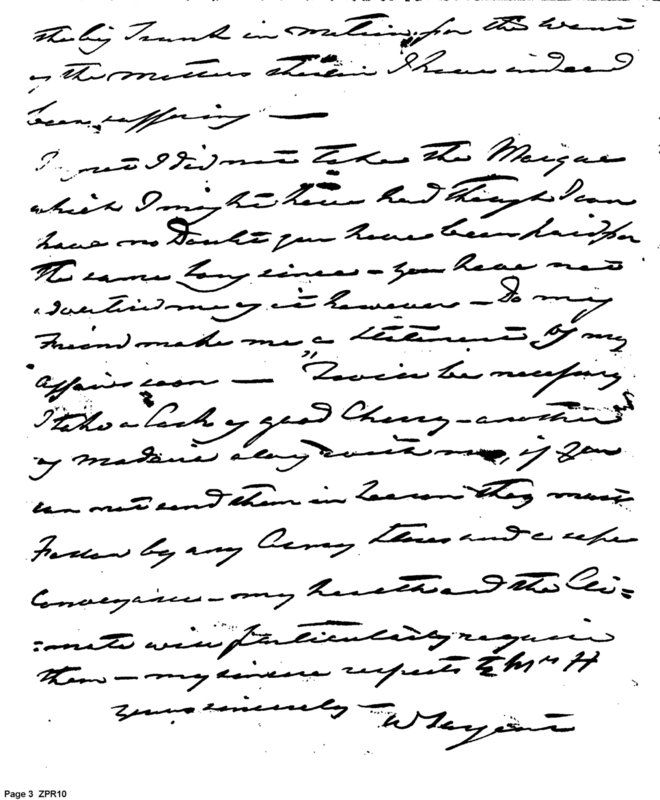 the big Trunk in motion, for the want
of the matters therein I have indeed
been suffering —
I did not take the Marquee
which I might have had though I can
have no Doubt you have been paid for
the same long since – you have not
advertised me of it however – Do my
Friend make me a Statement of my
affairs soon — 'Twill be necessary
I take a Cask of good Cherry – another
of Madeira along with me, if you
can not send them in Season they must
Follow by any Army Stores and a safe
Conveyance – my health and the Cli=
=mate will particularly require
them – my sincere respects to Mrs H
yours sincerely –
W Sargent
Page 3 ZPR10